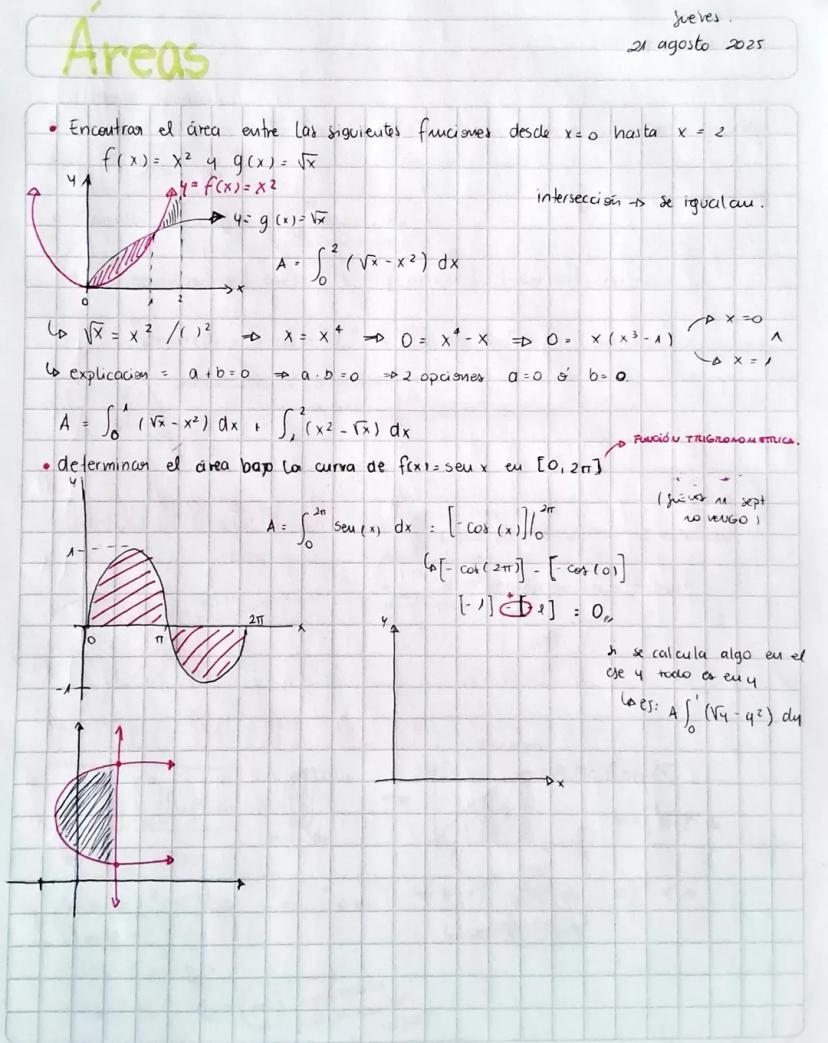 Jueves.
21 agosto 2025
Áreas
• Encontrar el área entre las siguientes funciones desde x=0 hasta x = 2
f(x) = x² y g(x) = √x
y
y = f(x) = x²
intersección → se igualan.
y = g(x) = √x
A = ∫₀² (√x - x²) dx
x
0 1 2
↳ √x = x² /( )² ⇒ x = x⁴ ⇒ 0 = x⁴ - x ⇒ 0 = x (x³ - 1) → x = 0 ∧ → x = 1
↳ explicacion = a + b = 0 ⇒ a · b = 0 ⇒ 2 opciones a = 0 ó b = 0.
A = ∫₀¹ (√x - x²) dx + ∫₁² (x² - √x) dx
→ FUNCIÓN TRIGRONOMETRICA.
• determinar el área bajo la curva de f(x) = sen x en [0, 2π]
y
sept
no vengo)
A = ∫₀²π sen(x) dx = [-cos (x)]|₀²π
1
↳ [-cos(2π)] - [-cos(0)]
0 π 2π x
[-1]
= 0,,
-1
y
se calcula algo en el
eje y todo es en y
↳ es: A ∫₀¹ (√y - y²) dy
x